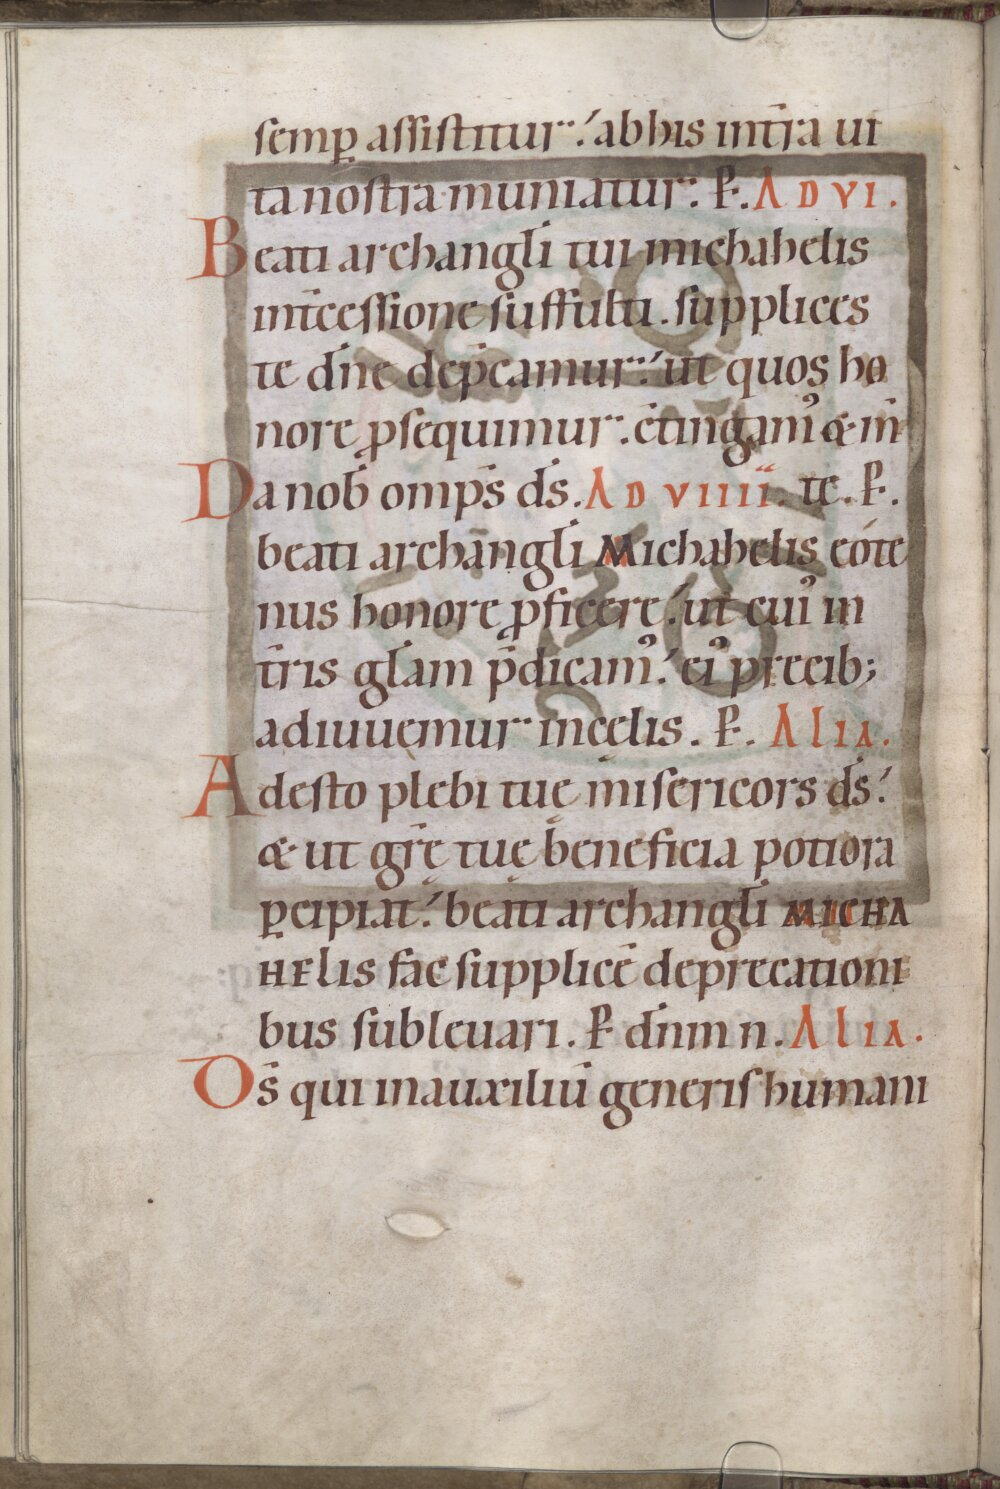 semꝑ assistitur. ab his int̄ra ui
ta nostra muniatur. P̄. AD VI.
Beati archangl̄i tui michahelis
int̄cessione suffulti. supplices
te dn̄e dep̄camur. ut quos ho
nore ꝓsequimur. c̄tingam᷒ & in
Da nob̄ omp̄s ds̄. AD VIIII. te. P̄.
beati archāngl̄i Michahelis eóte
nus honore ꝓficere. ut cui᷒ in
t̄ris gl̄am p̄dicam᷒. ei᷒ precib;
adiuuemur in cęlis. P̄. Alia.
Adesto plebi tuę misericors ds̄.
& ut gr̄ę tuę beneficia potiora
ꝑcipiat. beati archangl̄i MICHA
HELIS fac supplicē deprecationi
bus subleuari. P̄ dn̄m n. Alia.
Ds̄ qui in auxiliū generis humani